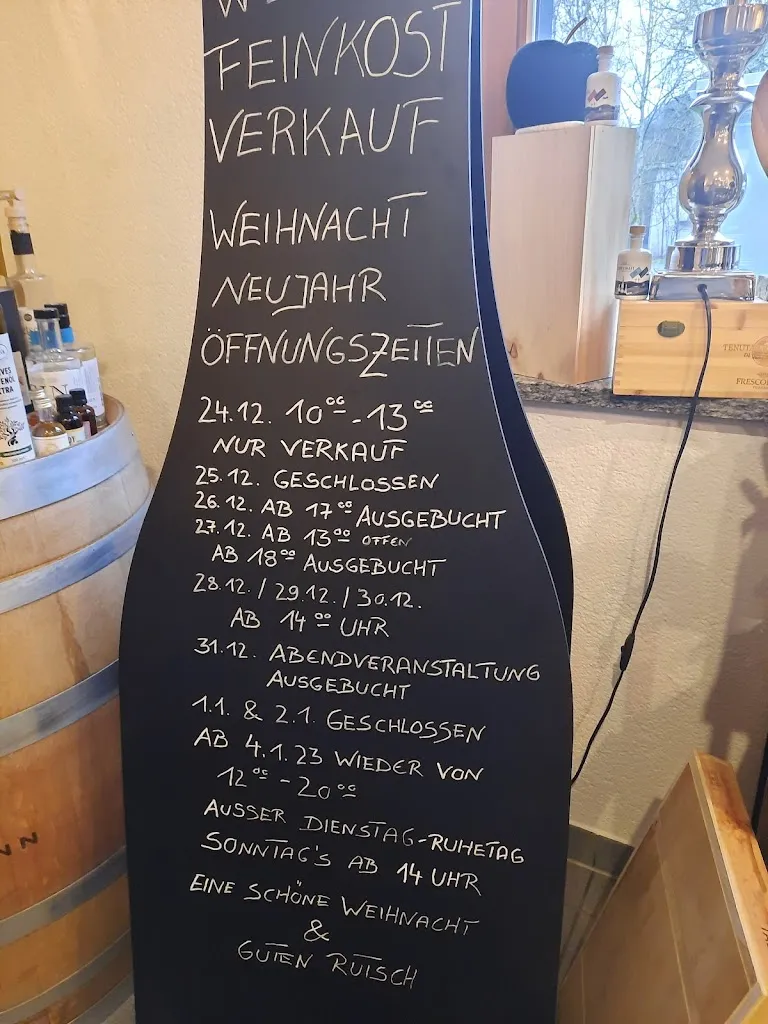 FEINKOST
VERKAUF
WEIHNACHT
NEUJAHR
ÖFFNUNGSZEITEN
24.12. 10⁰⁰ - 13⁰⁰
NUR VERKAUF
25.12. GESCHLOSSEN
26.12. AB 17⁰⁰ AUSGEBUCHT
27.12. AB 13⁰⁰ OFFEN
AB 18⁰⁰ AUSGEBUCHT
28.12. / 29.12. / 30.12.
AB 14⁰⁰ UHR
31.12. ABENDVERANSTALTUNG
AUSGEBUCHT
1.1. & 2.1. GESCHLOSSEN
AB 4.1.23 WIEDER VON
12⁰⁰ - 20⁰⁰
AUSSER DIENSTAG-RUHETAG
SONNTAG'S AB 14 UHR
EINE SCHÖNE WEIHNACHT
&
GUTEN RUTSCH